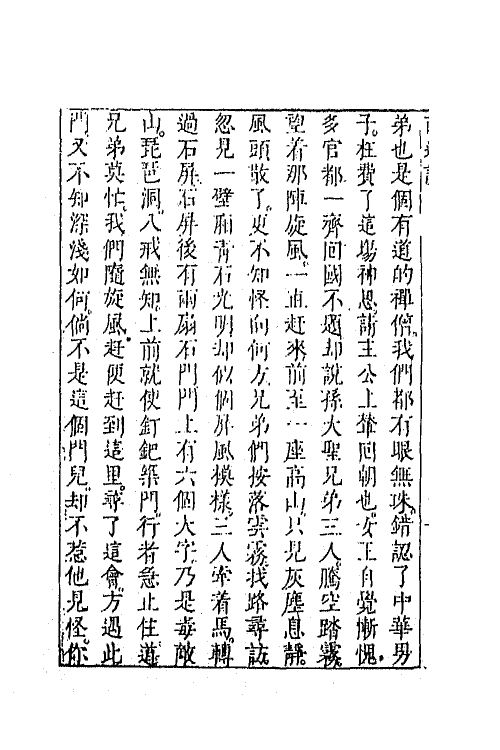 弟也是個有道的禪僧。我們都有眼無珠。錯認了中華男
子。枉費了這場神思。請主公上輦回朝也。女王自覺慚愧。
多官都一齊回國不題。却說孫大聖兄弟三人。騰空踏霧。
望着那陣旋風。一直赶來。前至一座高山。只見灰塵息靜。
風頭散了。更不知怪向何方。兄弟們按落雲霧。找路尋訪
忽見一壁廂青石光明。却似個屏風模樣。三人牽着馬。轉
過石屏。石屏後有兩扇石門。門上有六個大字。乃是毒敵
山。琵琶洞。八戒無知。上前就使釘鈀築門。行者急止住道
兄弟莫忙。我們隨旋風赶便赶到這里。尋了這會。方遇此
門。又不知深淺如何。倘不是這個門兒。却不惹他見怪。你